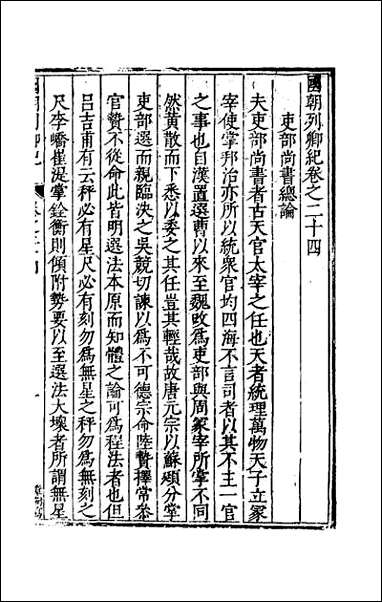 國朝列卿紀卷之二十四
吏部尚書總論
夫吏部尚書者古天官太宰之任也天者統理萬物天子立冢
宰使掌邦治亦所以統衆官均四海不言司者以其不主一官
之事也自漢置選曹以來至魏改爲吏部與周冢宰所掌不同
然黄散而下悉以委之其任豈其輕哉故唐元宗以蘇頲分掌
吏部選而親臨決之吳兢切諫以爲不可德宗命陸贄擇常叅
官贄不從命此皆明選法本原而知體之論可爲程法者也但
呂吉甫有云秤必有星尺必有刻勿爲無星之秤勿爲無刻之
尺李嶠崔湜掌銓衡則傾附勢要以至選法大壞者所謂無星